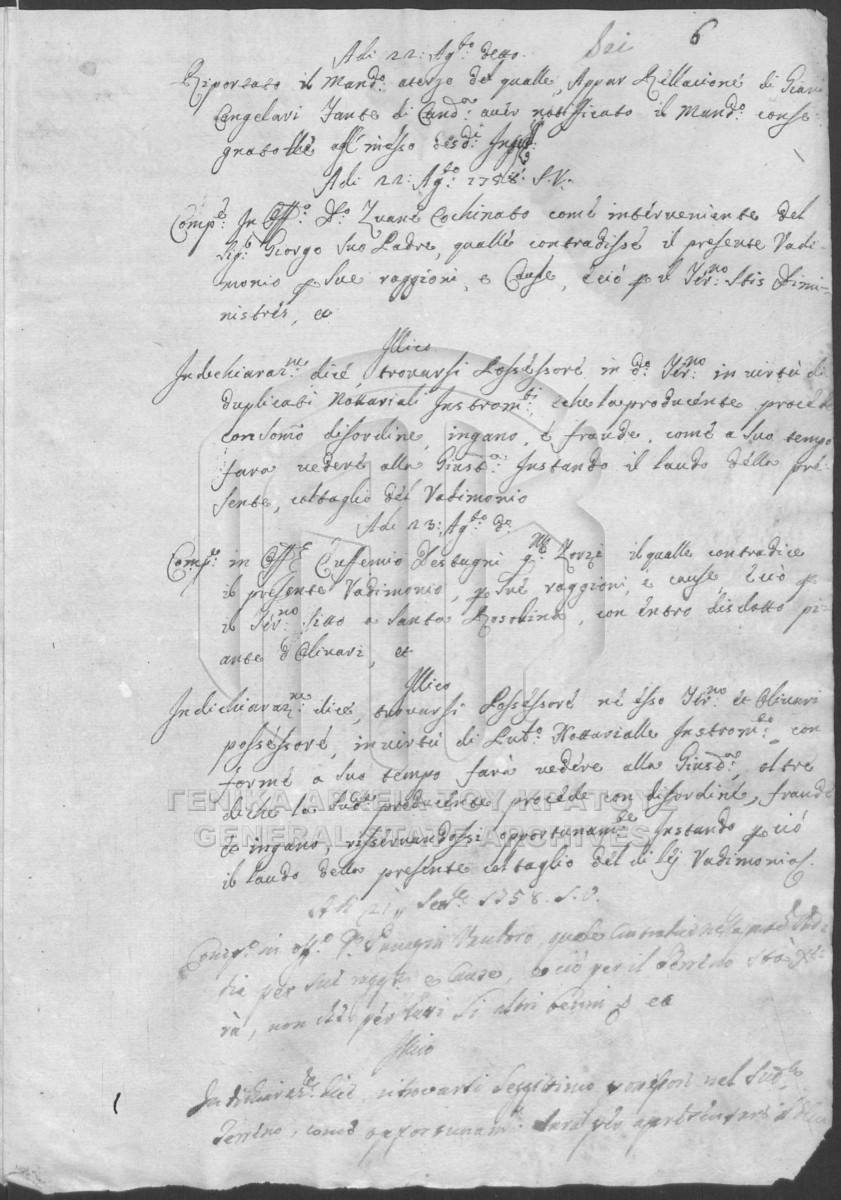 Sei 6
Adi 22: Ag.to detto.
Riportato il Mand.o aterzo del qualle, Appar Rellacione di Giani
Cangelari Fante di Cand.a aver nottificato il Mand.o conse-
gnatolle all'messo
Adi 22: Ag.to 1758: S.V.
Comp.e In Off.o D.o Zuane Cochinato come interveniente del
Sig.r Giorgo suo Padre, qualle contradisse il presente Vadi-
monio p sue raggioni, e Cause, e ciò p il Ter.no Stis Dimi-
nistres, ec
Illico
Indichiaraz.ne dice, trovarsi Possessore in d.o Ter.no in virtù di
duplicati Nottariali Instrom.ti, che la producente procede
con somo disordine, ingano, e fraude, come a suo tempo
farà vedere alla Giust.a: Instando il laudo della pre-
sente, e il taglio del Vadimonio
Adi 23: Ag.to d.o
Comp.e in Off.o Eufemio Destugni q.m Zorzi il qualle contradice
il presente Vadimonio, p sue raggioni, e cause, e ciò p
il Ter.no sitto a Santa, con entro disdotto pi-
ante d'Olivari, ec
Illico
Indichiaraz.ne dice, trovarsi Possessore ne esso Ter.no et Olivari
possessore, in virtù di Nottarialle Instrom.to, con
forme a suo tempo farà vedere alla Giust.a, oltre
diche la sud.a producente procede con disordine, fraude
et ingano, risservandossi opportunam.te Instando p ciò
il laudo della presente et taglio del di lej Vadimonio.
ΓΕΝΙΚΑ ΑΡΧΕΙΑ ΤΟΥ ΚΡΑΤΟΥΣ
GENERAL STATE ARCHIVES
1758. S.V.
Comp.e in off.o quale contradice
per sue e Cause, e ciò per il Terreno
rà, non che per tutti li altri beni ec
Illico
Indichiaraz.ne dice, ritrovarsi Leggitimo nel sud.o
Terreno, come opportunam.te farà